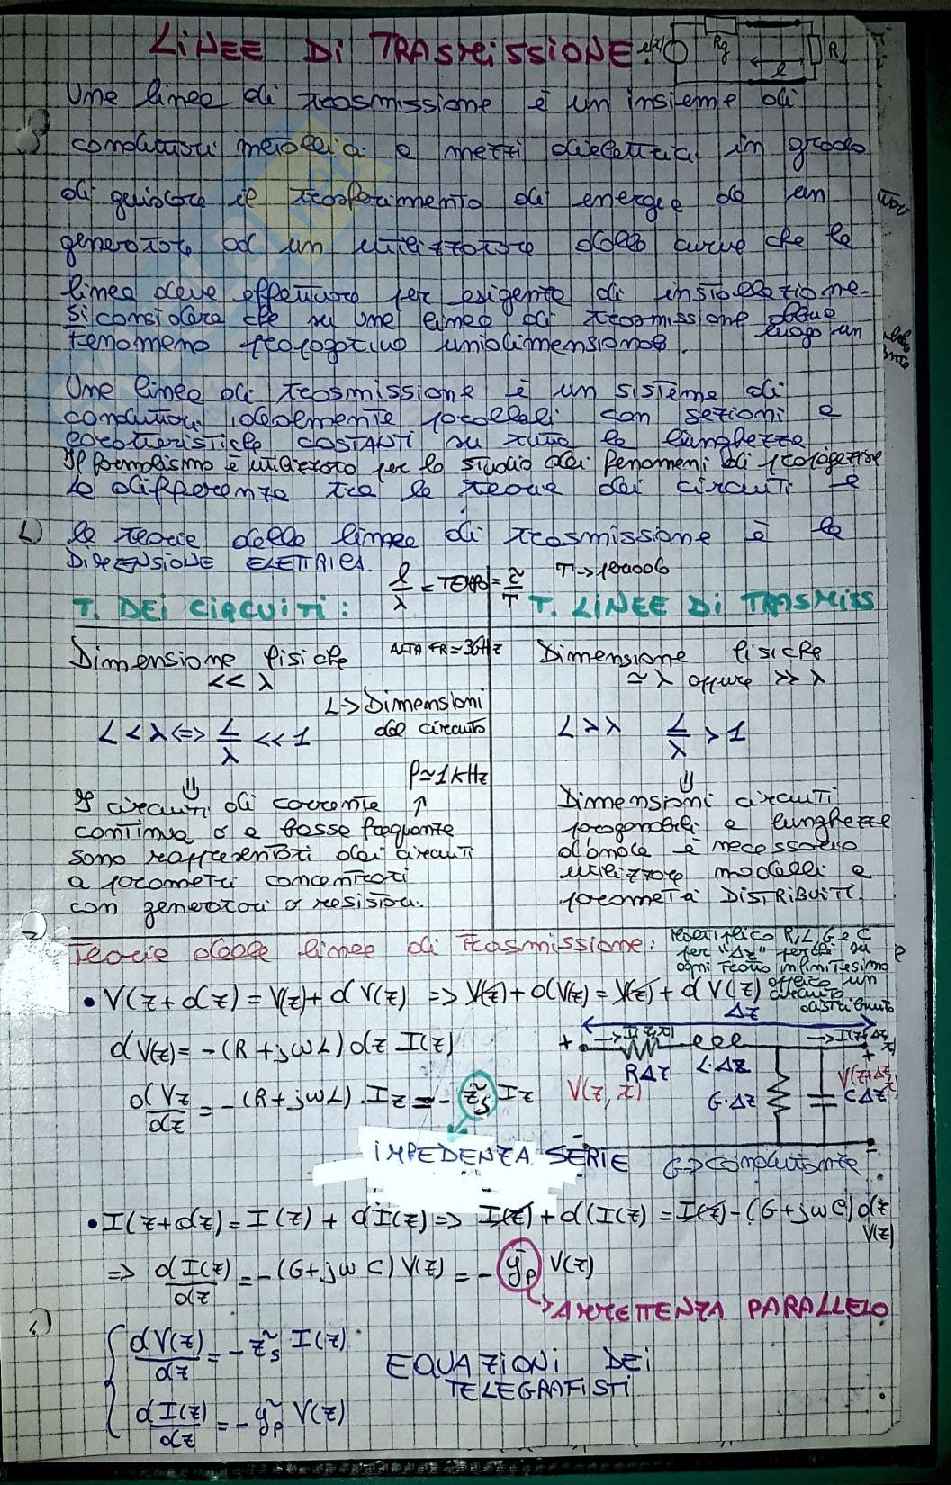 LINEE DI TRASMISSIONE:
e(t) Rg R
l
Une linea di trasmissione è un insieme di
conduttori metallici e mezzi dielettrici in grado
di guidare il trasferimento di energia da un
generatore ad un utilizzatore dalle curve che la
linea deve effettuare per esigenze di installazione.
Si considera che su una linea di trasmissione abbia luogo un
fenomeno propagativo unidimensionale.
Una linea di trasmissione è un sistema di
conduttori, idealmente paralleli con sezioni e
caratteristiche COSTANTI su tutta la lunghezza
Il formalismo è utilizzato per lo studio dei fenomeni di propagazione
La differenza tra la teoria dei circuiti e
la teoria delle linee di trasmissione è la
DIMENSIONE ELETTRICA
l/λ = TEMPO = τ/T T → periodo
T. DEI CIRCUITI: T. LINEE DI TRASMISS
Dimensione fisiche << λ
ALTA FR ≃ 3GHz
Dimensione fisiche ≃ λ oppure >> λ
L → Dimensioni del circuito
L < λ <=> L/λ << 1
L > λ L/λ > 1
f ≃ 1 kHz
⇓
↑
⇓
I circuiti di corrente
continua o a basse frequenze
sono rappresentati dai circuiti
a parametri concentrati
con generatori o resistori.
Dimensioni circuiti
paragonabili a lunghezze
d'onda è necessario
utilizzare modelli a
parametri DISTRIBUITI.
Teoria delle linee di trasmissione:
specifico R, L, G e C
per "Δz" perché su
ogni tratto infinitesimo
applico un
circuito
distribuito
• V(z+dz) = V(z) + dV(z) => V(z) + dV(z) = V(z) + dV(z)
dV(z) = -(R+jωL) dz I(z)
dVz/dz = -(R+jωL) . Iz = - z̃s Iz
IMPEDENZA SERIE
Δz
+ RΔz L.Δz
V(z,t) G.Δz CΔz
G → conduttanza
• I(z+dz) = I(z) + dI(z) => I(z) + d(I(z) = I(z) - (G+jωC) dz V(z)
=> dI(z)/dz = -(G+jωC) V(z) = - ỹp V(z)
→ AMMETTENZA PARALLELO
{ dV(z)/dz = - z̃s I(z)
EQUAZIONI DEI TELEGRAFISTI
dI(z)/dz = - ỹp V(z)